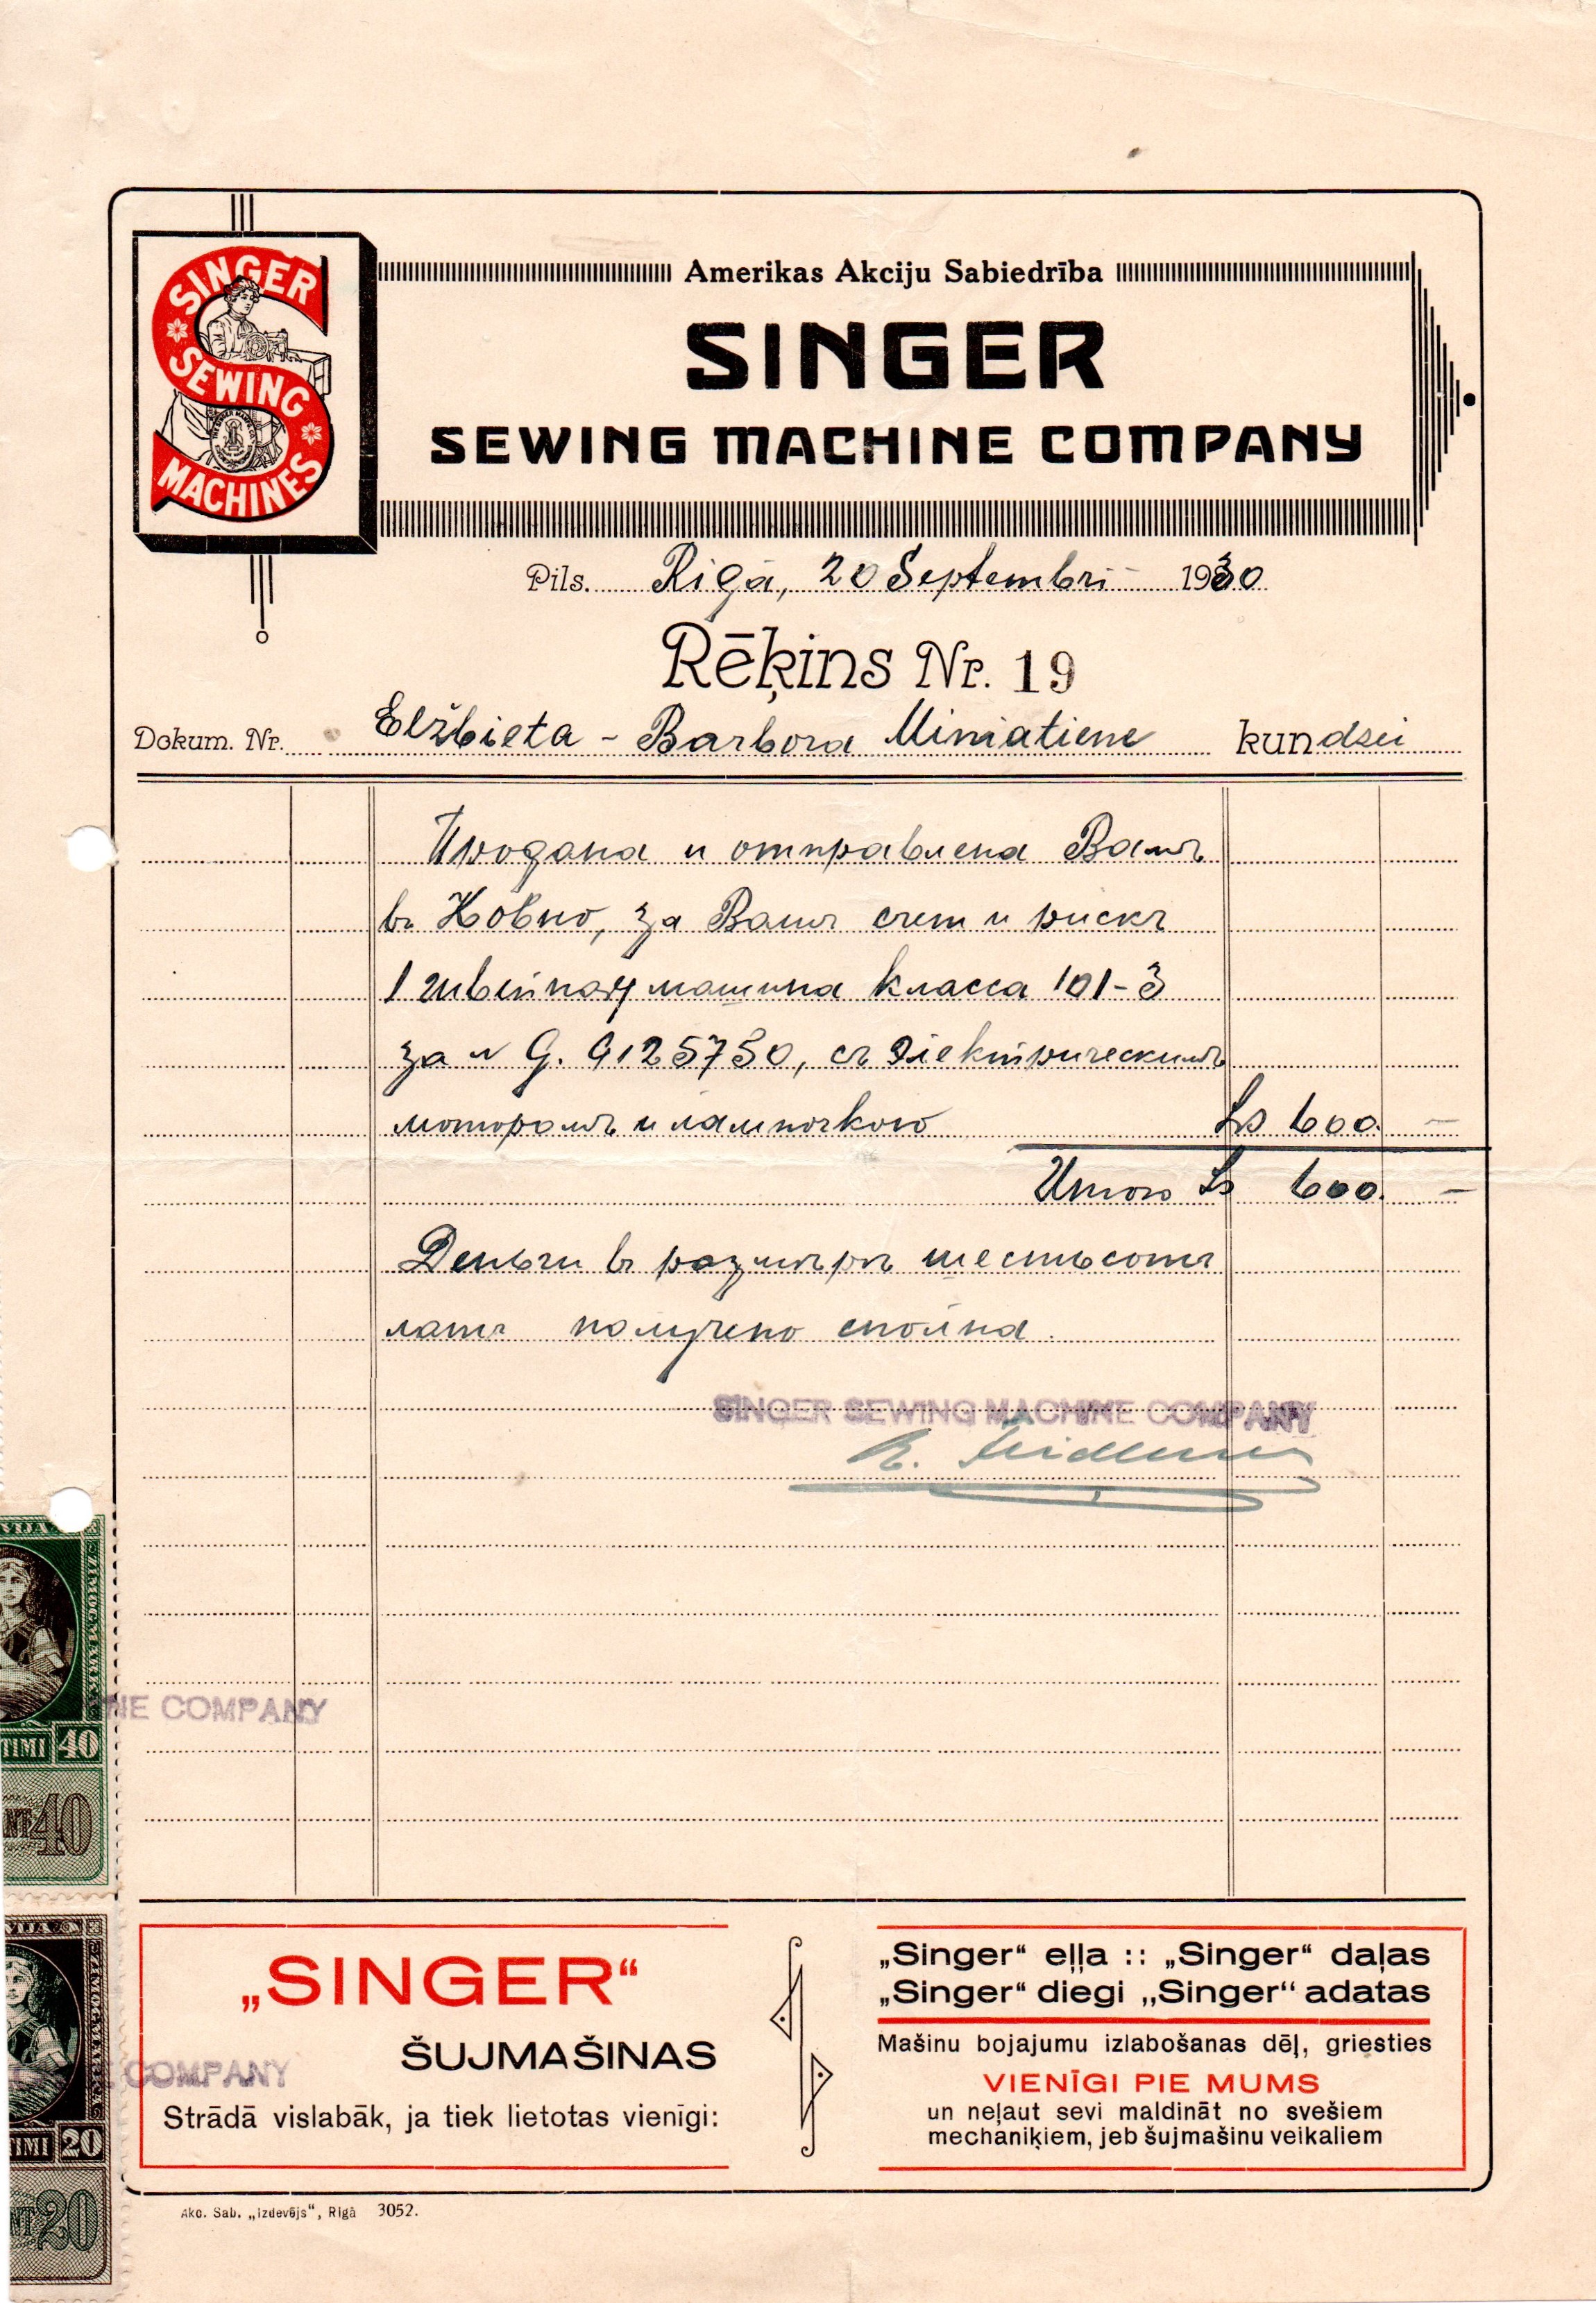 SINGER
SEWING
MACHINES
Amerikas Akciju Sabiedrība
SINGER
SEWING MACHINE COMPANY
Pils. Rīgā, 20 Septembri 1930
Rēķins Nr. 19
Dokum. Nr. Elžbieta - Barbora Miniatiene kundzei
Продана и отправлена Вамъ
въ Ковно, за Вашъ счет и рискъ
1 швейная машина класса 101-3
за № G. 9125750, съ электрическимъ
моторомъ и лампочкою Ls 600. —
Итого Ls 600. —
Деньги въ размѣрѣ шестьсотъ
латъ получено сполна.
SINGER SEWING MACHINE COMPANY
VIJA
ZIMOGMARKA
NE COMPANY
TIMI 40
NT 40
VIJA
COMPANY
TIMI 20
NT 20
„SINGER“
ŠUJMAŠINAS
Strādā vislabāk, ja tiek lietotas vienīgi:
„Singer“ eļļa :: „Singer“ daļas
„Singer“ diegi „Singer“ adatas
Mašinu bojajumu izlabošanas dēļ, griesties
VIENĪGI PIE MUMS
un neļaut sevi maldināt no svešiem
mechaniķiem, jeb šujmašinu veikaliem
Akc. Sab. „Izdevējs“, Rīgā 3052.